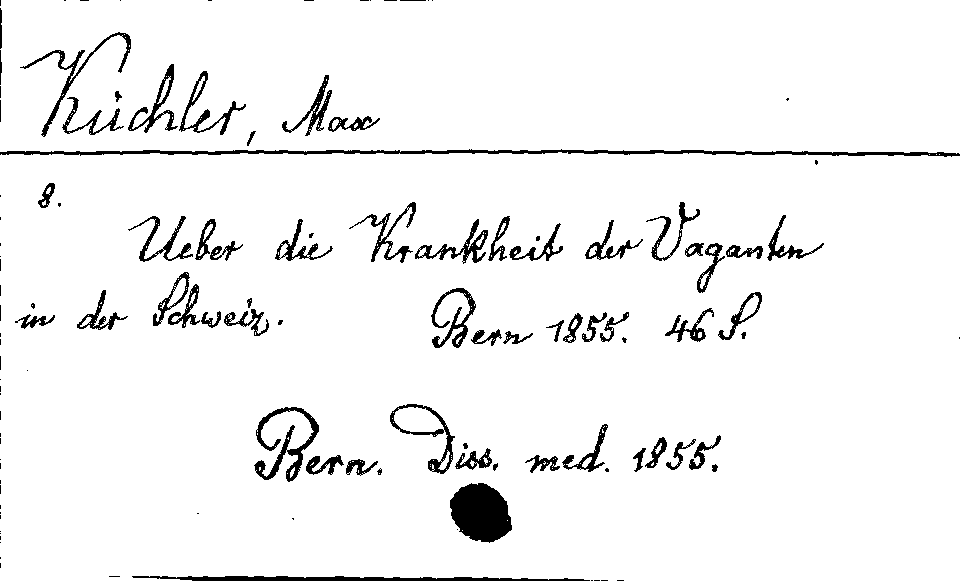 Küchler, Max
8.
Ueber die Krankheit der Vaganten
in der Schweiz. Bern 1855. 46 S.
Bern. Diss. med. 1855.